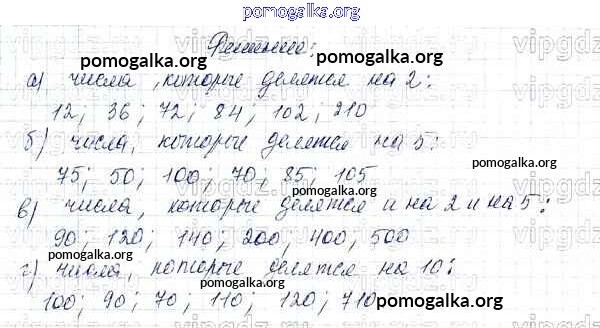 pomogalka.org
Решение:
а) числа, которые делятся на 2:
pomogalka.org
pomogalka.org
12; 36; 72; 84; 102; 210
б) числа, которые делятся на 5:
pomogalka.org
75; 50; 100; 70; 85; 105
pomogalka.org
в) числа, которые делятся и на 2 и на 5:
90; 120; 140; 200; 400; 500
pomogalka.org
г) числа, которые делятся на 10:
100; 90; 70; 110; 120; 710
pomogalka.org